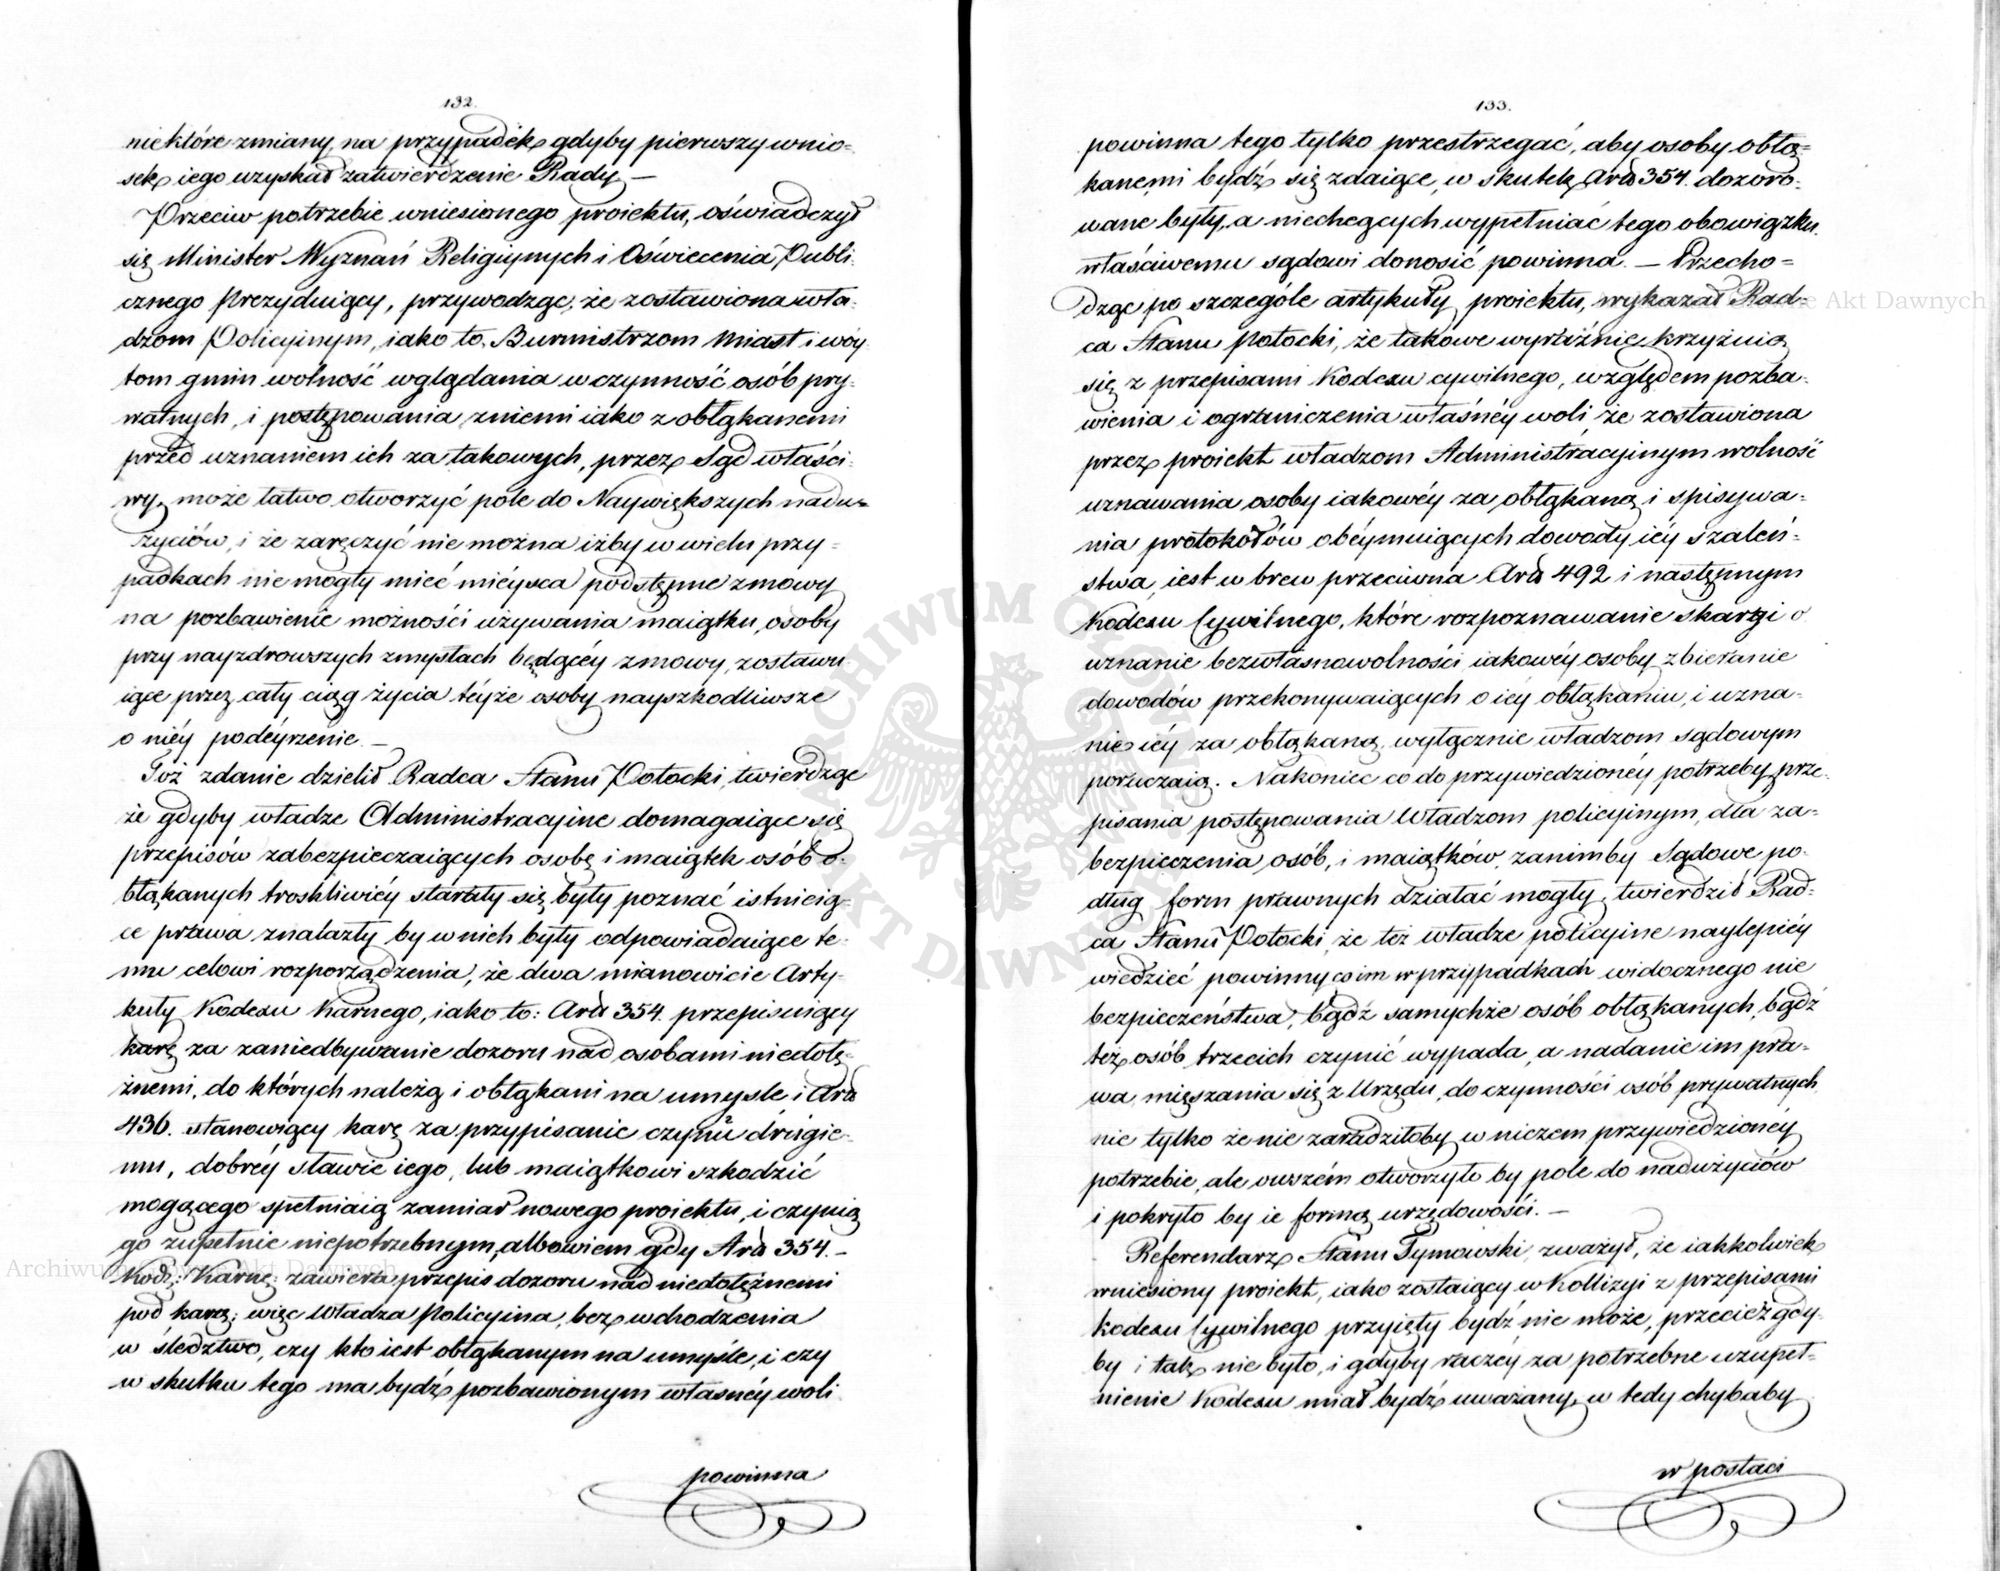 132.
niektóre zmiany na przypadek gdyby pierwszy wnio=
sek iego uzyskał zatwierdzenie Rady —
Przeciw potrzebie wniesionego proiektu, oświadczył
się Minister Wyznań Religiynych i Oświecenia Publi
cznego Prezyduiący, przywodząc, że zostawiona wła-
dzom Policyinym, iako to, Burmistrzom Miast i wóy
tom gmin wolność wglądania w czynność osób pry-
watnych, i postępowania zniemi iako z obłąkanemi
przed uznaniem ich za takowych, przez Sąd właści-
wy, może łatwo otworzyć pole do Naywiększych nadu-
życiów, i że zaręczyć nie można iżby w wielu przy-
padkach nie mogły mieć mieysca podstępne zmowy
na pozbawienie możności używania maiątku, osoby
przy nayzdrowszych zmysłach będącéy zmowy, zostawu
iące przez cały ciąg życia téyże osoby nayszkodliwsze
o niéy podéyrzenie —
Toż zdanie dzielił Radca Stanu Potocki, twierdząc
że gdyby władze Administracyine domagaiące się
przepisów zabezpieczaiących osobę i maiątek osób o-
błąkanych troskliwiéy starały się były poznać istnieią-
ce prawa znalazły by w nich były odpowiadaiące te-
mu celowi rozporządzenia, że dwa mianowicie Arty-
kuły Kodexu Karnego, iako to: Art 354. przepisuiący
karę za zaniedbywanie dozoru nad osobami niedołę-
żnemi, do których należą i obłąkani na umyśle i Art
436. stanowiący karę za przypisanie czynu drugie-
mu, dobréy sławie iego, lub maiątkowi szkodzić
mogącego spełniaią zamiar nowego proiektu, i czynią
go zupełnie niepotrzebnym, albowiem gdy Art 354. —
Kod: Karne: zawiera przepis dozoru nad niedołężnemi
pod karą: więc Władza Policyina, bez wchodzenia
w śledztwo, czy kto iest obłąkanym na umyśle, i czy
w skutku tego ma bydź pozbawionym własnéy woli
powinna
133.
powinna tego tylko przestrzegać, aby osoby obłą=
kanemi bydź się zdaiące, w skutek Art 354. dozoro-
wane były, a niechcących wypełniać tego obowiązku
właściwemu sądowi donosić powinna. — Przecho=
dząc po szczególe artykuły proiektu, wykazał Rad-
ca Stanu Potocki, że takowe wyraźnie krzyżuią
się z przepisami Kodexu cywilnego, względem pozba-
wienia i ograniczenia właśnéy woli, że zostawiona
przez proiekt władzom Administracyinym wolność
uznawania osoby iakowéy za obłąkaną i spisywa-
nia protokołów obéymuiących dowody iéy szaleń-
stwa, iest w brew przeciwna Art 492 i następnym
Kodexu Cywilnego, które rozpoznawanie skargi o
uznanie bezwłasnowolności iakowéy osoby, zbieranie
dowodów przekonywaiących o iéy obłąkaniu, i uzna-
nie iéy za obłąkaną, wyłącznie władzom sądowym
poruczaią. Nakoniec co do przywiedzionéy potrzeby prze-
pisania postępowania Władzom policyinym, dla za-
bezpieczenia osób, i maiątków, zanimby Sądowe po-
dług form prawnych działać mogły, twierdził Rad-
ca Stanu Potocki, że też władze policyine naylepiéy
wiedzieć powinny co im w przypadkach widocznego nie
bezpieczeństwa, bądź samychże osób obłąkanych, bądź
też osób trzecich czynić wypada, a nadanie im pra-
wa mięszania się z Urzędu, do czynności osób prywatnych
nie tylko że nie zaradziłoby w niczem przywiedzionéy
potrzebie, ale owszém otworzyło by pole do nadużyciów
i pokryło by ie formą urzędowości. —
Referendarz Stanu Tymowski, zważył, że iakkolwiek
wniesiony proiekt, iako zostaiący w Kollizyi z przepisami
Kodexu Cywilnego przyięty bydź nie może, przecież gdy-
by i tak nie było, i gdyby raczéy za potrzebne uzupeł-
nienie Kodexu miał bydź uważany, w tedy chybaby
w postaci
Archiwum Główne Akt Dawnych